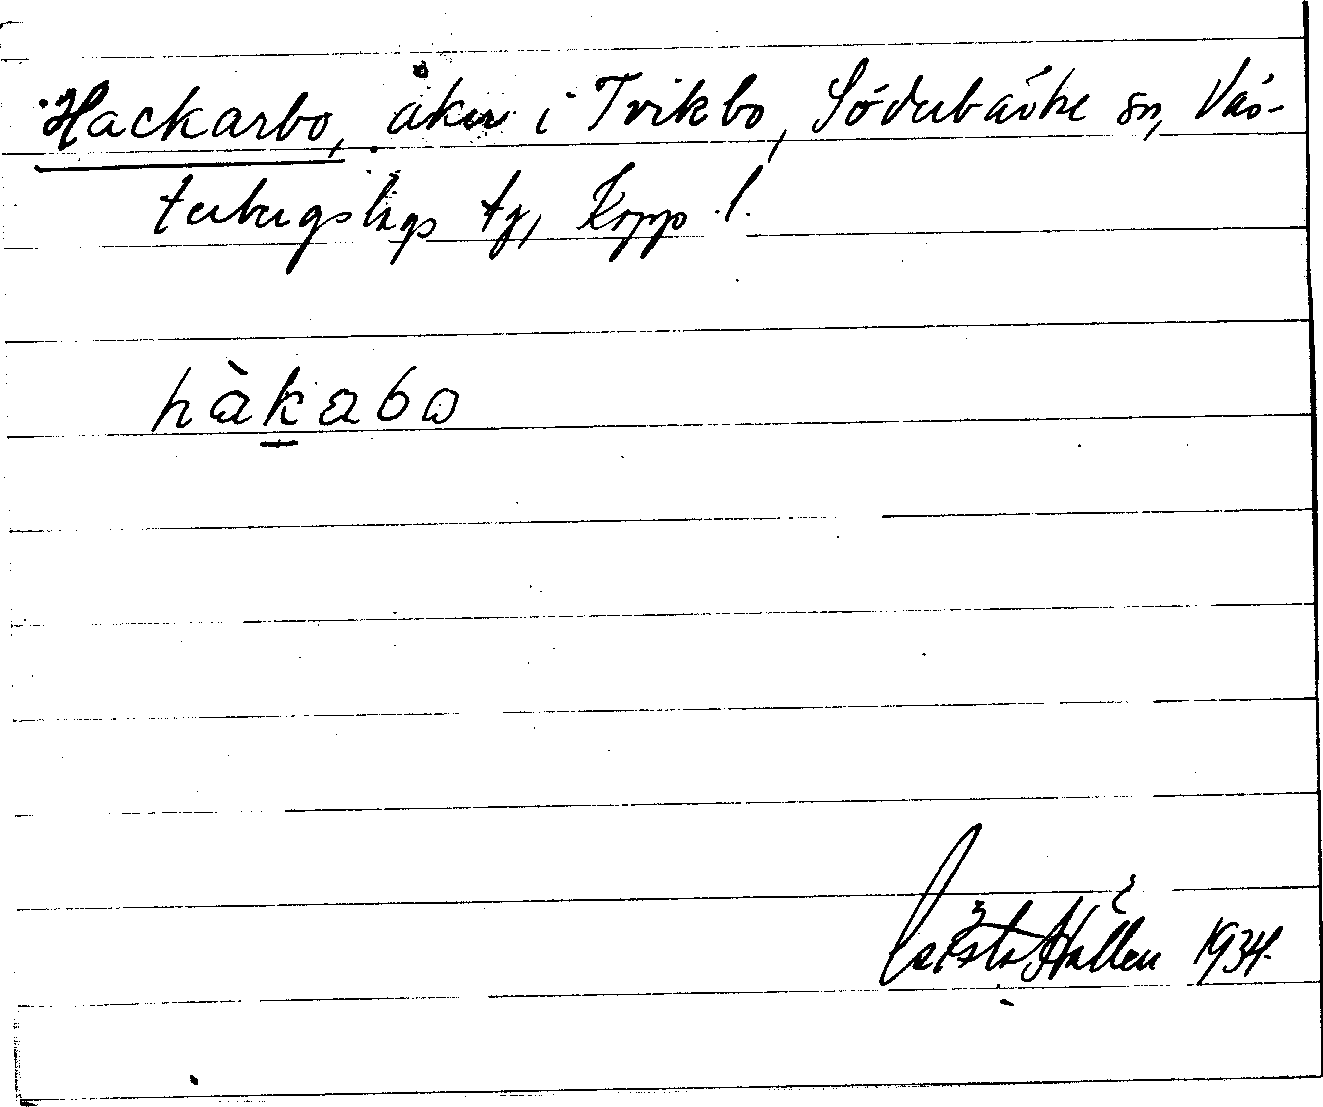 Hackarbo, åker i Tvikbo, Söderbärke sn, Väs-
terbergslags tg, Kopp. l.
hàkabo
Hallén 1934.